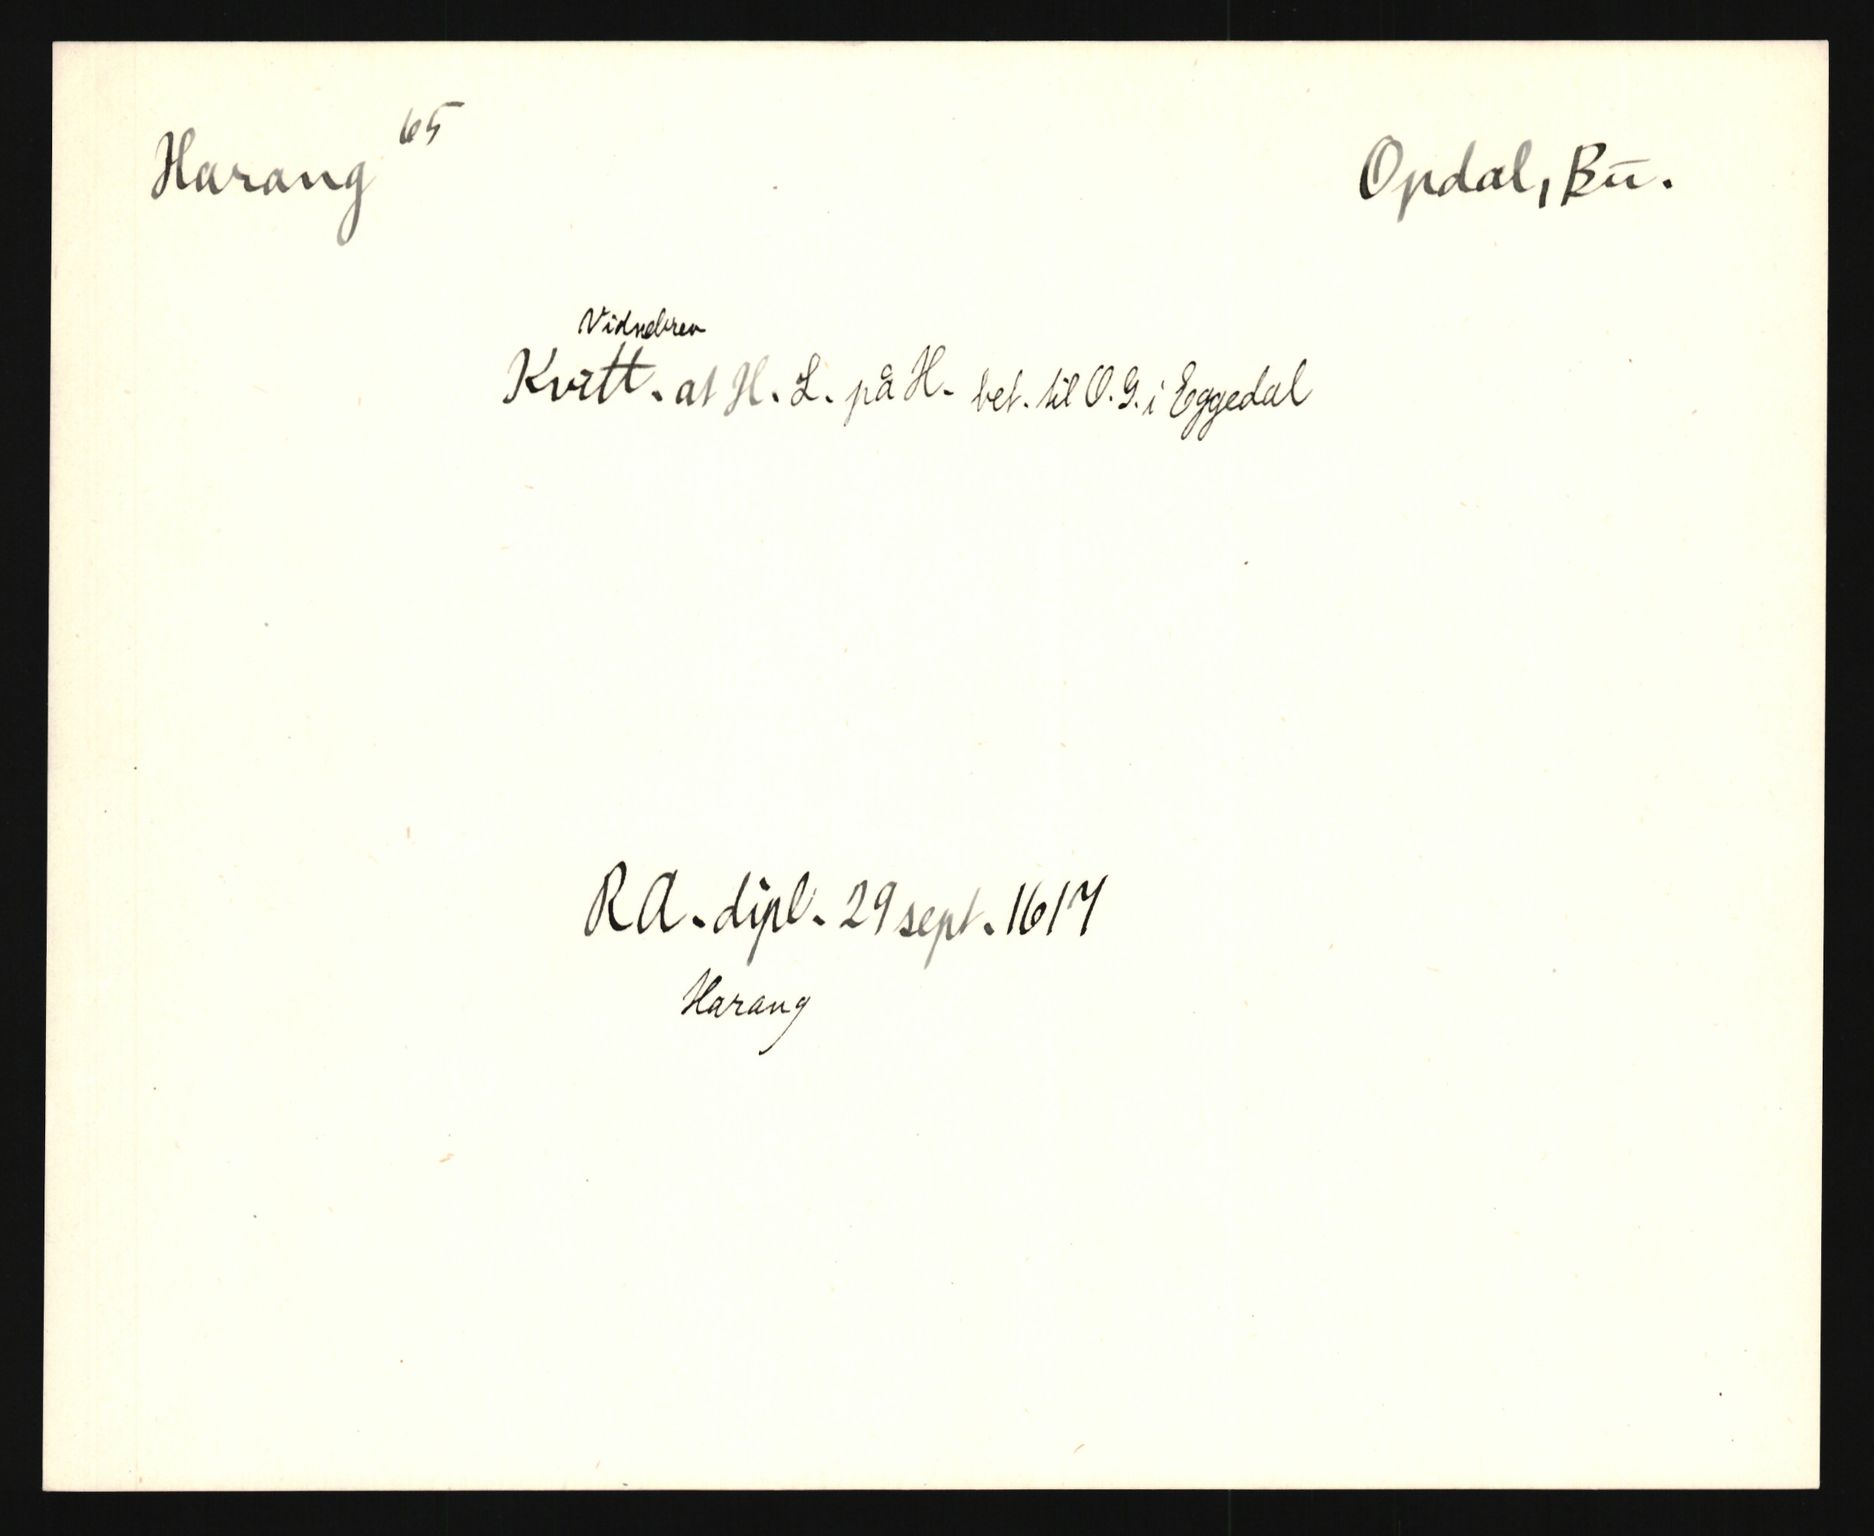 Harang 65
Opdal, Bu.
Vidnebrev
Kvitt. at H. L. på H. bet. til O. G. i Eggedal
RA. dipl. 29 sept. 1617
Harang